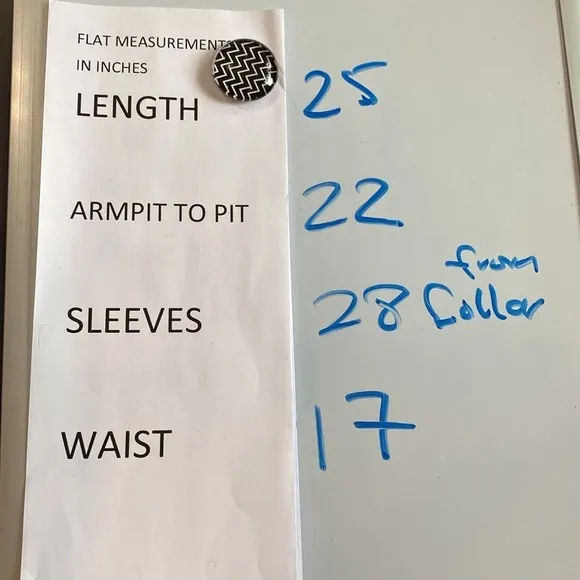 FLAT MEASUREMENT
IN INCHES
LENGTH 25
ARMPIT TO PIT 22
from
SLEEVES 28 Collar
WAIST 17